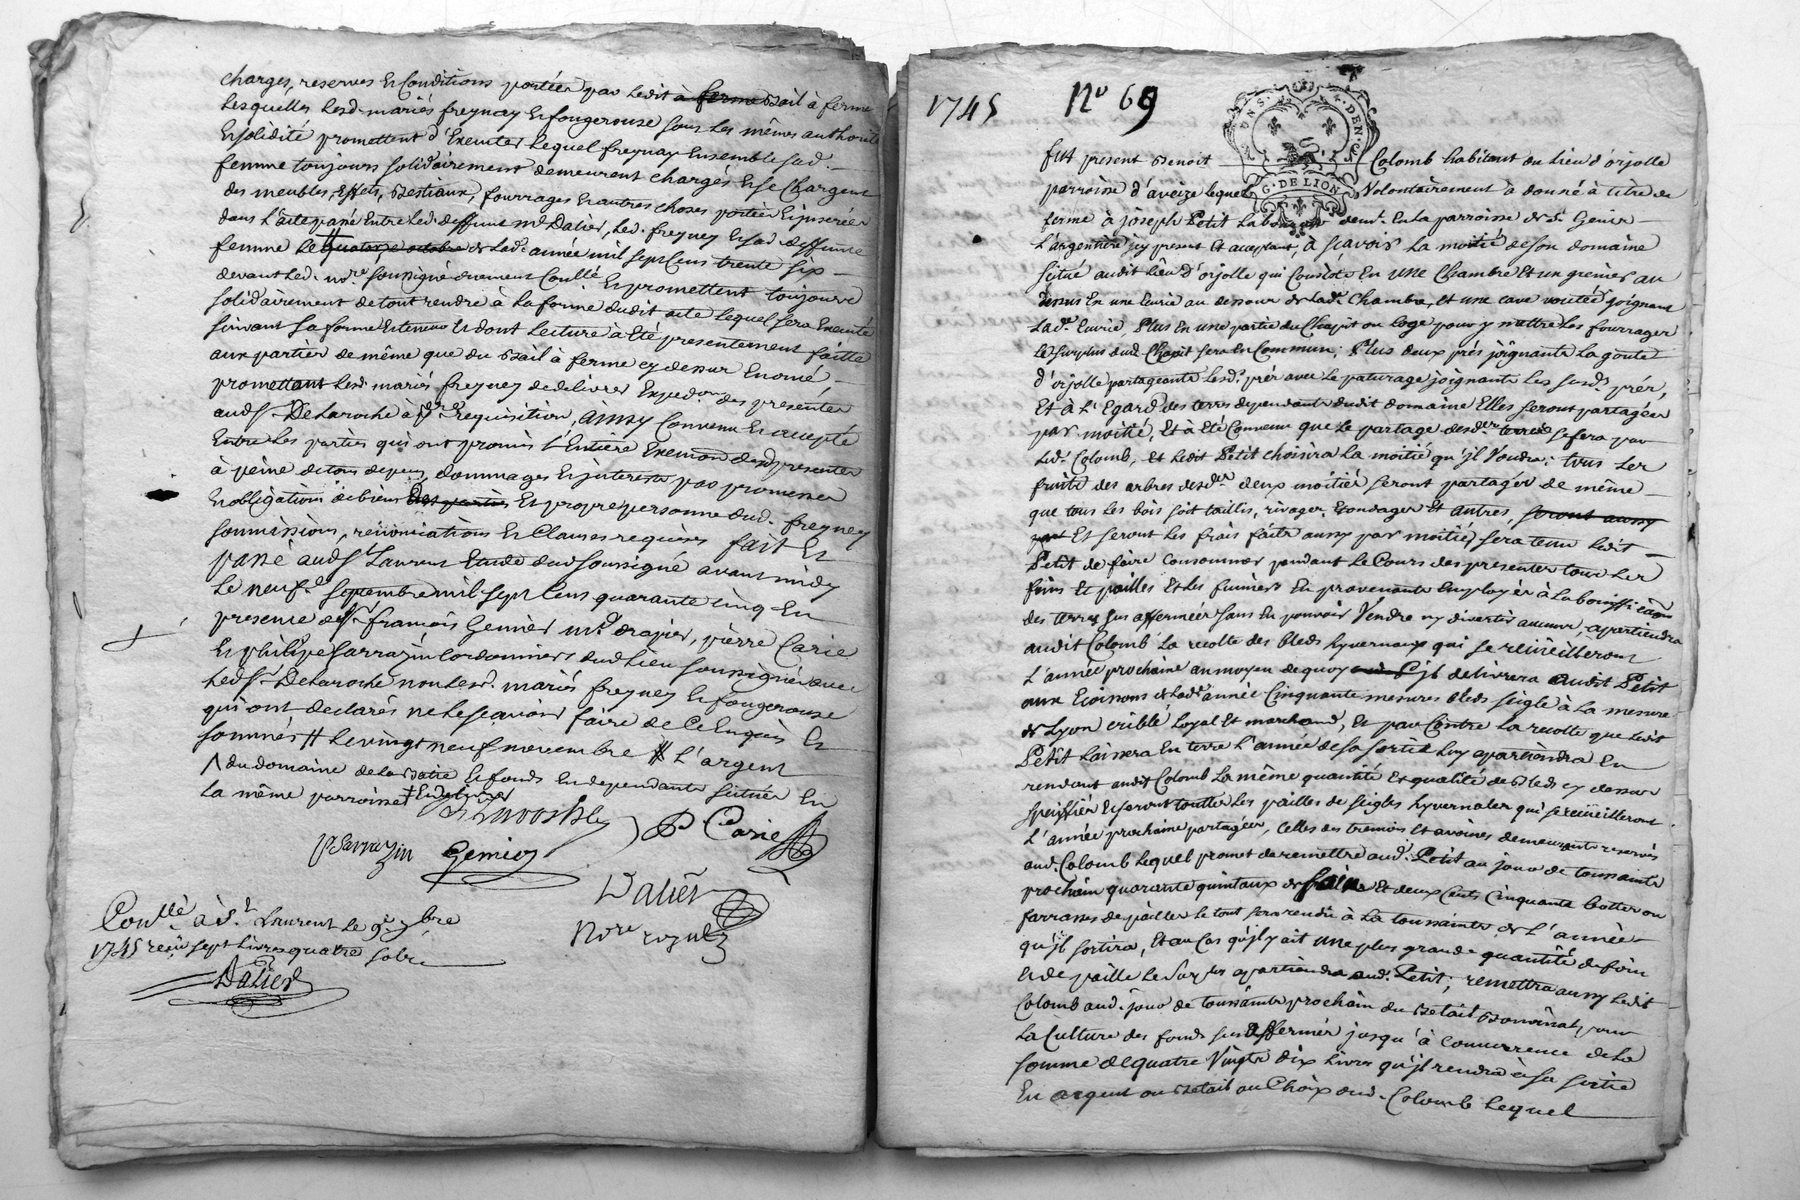 charges, reserves et Conditions portées par ledit à ferme Bail à ferme
lesquelles lesd. mariés freynay et fougerouse sous les mêmes authorité
et solidité promettent d'Executer lequel freynay Ensemble sad.
femme toujours solidairement demeurent chargés et se Chargent
des meubles, Effets, Bestiaux, fourrages et autres choses portées et inserées
dans l'acte passé Entre led. deffunt Mr Dalier, led. freyney et sad. deffunte
femme le quatorze octobre de lad. année mil sept Cens trente six
devant led. nore. soussigné duement Coullé Et promettent toujours
solidairement de tout rendre à la forme dudit acte lequel sera Executé
suivant sa forme et teneur et dont lecture a Eté presentement faitte
aux parties de même que du Bail à ferme cy dessus Enoncé,
promettant lesd. mariés freyney de delivrer Exped.on des presentes
aud Sr. De Laroche à sa requisition, ainsy Convenu et accepté
Entre les parties qui ont promis l'Entiere Execution desd presentes
à peine de tous depens, dommages et interests par promesses
et obligations de biens des parties Et propre personne dud. freyney
soumissions, rénonciations et Clauses requises fait et
passé aud St Laurent Etude dud soussigné avant midy
le neuf.e septembre mil sept Cens quarante cinq En
presence de Sr. françois Genier md. drapier, pierre Carie
et philipe Sarrazin Cordonniers dud lieu soussignés avec
led Sr. De Laroche non lesd. mariés freyney et fougerouse
qui ont declarés ne le sçavoir faire de Ce Enquis et
sommés # le vingt neuf novembre # L'argent
du domaine de la Batie et fonds En dependants situés En
la même parroisse
PSarrazin Genier P Carie
Dalier
Nore royal
Conllé à St. Laurent le 9e 7bre
1745 reçu sept livres quatre sols
Dalier
1745 No 69
G. DE LION
fut present Benoit Colomb habitant du lieu d'orjolle
parroisse d'aveize lequel Volontairement a donné à titre de
ferme à joseph Petit Laboureur demt. En la parroisse de St Genis
l'argentière icy present Et acceptant, à sçavoir la moitié de son domaine
situé audit lieu d'orjolle qui Consiste En une Chambre Et un grenier au
dessus En une Ecurie au dessous de lad. Chambre, et une cave voutée joignant
lade. Ecurie Plus En une partie du Chapit ou loge pour y mettre les fourrages
le surplus dud. Chapit sera En Commun; Plus deux prés joignants la goute
d'orjolle partageants lesds. prés avec le paturage joignants les susds. prés,
Et à L'Egard des terres dependants dudit domaine Elles seront partagées
par moitié, Et a Eté Convenu que le partage desdes terres se fera par
led. Colomb, Et ledit Petit choisira la moitié qu'il Voudra; tous les
fruits des arbres desdes deux moitiés seront partagés de même
que tous les bois soit taillis, rivages, Et autres, seront aussy
Et seront les frais faits aussy par moitié, sera tenu ledit
Petit de faire Consommer pendant le Cours des presentes tous les
foins Et pailles Et les fumiers En provenants Employés à la bonification
des terres sus affermées sans En pouvoir Vendre ny divertir aucuns, apartiendra
audit Colomb la recolte des bleds hyvernaux qui se recüeilleront
l'année prochaine au moyen de quoy il delivrera audit Petit
aux de lade année Cinquante mesures bleds seigle à la mesure
de Lyon criblé Loyal Et marchand, Et par Contre la recolte que ledit
Petit laissera En terre l'année de sa sortie luy apartiendra En
rendant audit Colomb la même quantité Et qualité de Bleds cy dessus
speciffiés Et seront touttes les pailles de seigles hyvernales qui se recüeilleront
l'année prochaine partagées, Celles des tremois Et avoines demeurants reservés
aud. Colomb lequel promet de remettre aud. Petit au jour de toussaints
prochain quarante quintaux de foin Et deux Cents Cinquante bottes ou
farrasses de pailles le tout sera rendu à la toussaints de l'année
qu'il sortira, Et au Cas qu'il y ait une plus grande quantité de foin
et de paille le surplus apartiendra aud. Petit; remettra aussy ledit
Colomb aud. jour de toussaints prochain du Betail Bovinat, pour
la Culture des fonds sus affermés jusqu'à Concurrence de la
somme de quatre Vingts dix Livres qu'il rendra à sa sortie
En argent ou Betail au Choix dud. Colomb lequel